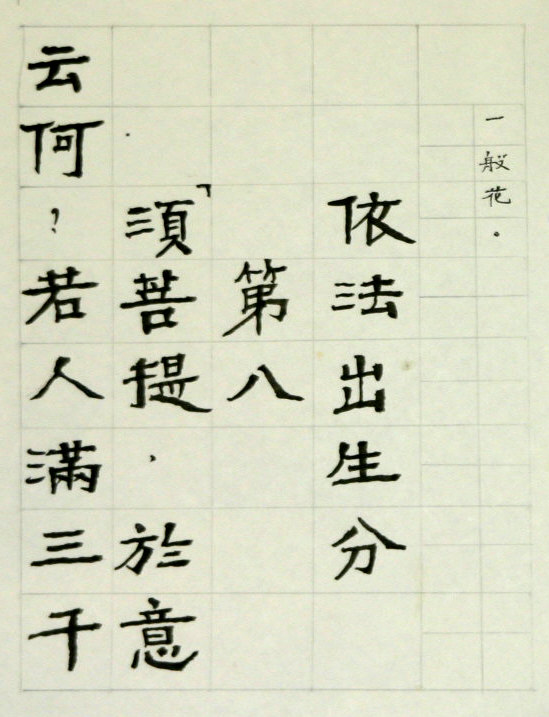 一般花。
依法出生分
第八
「須菩提,於意
云何?若人滿三千